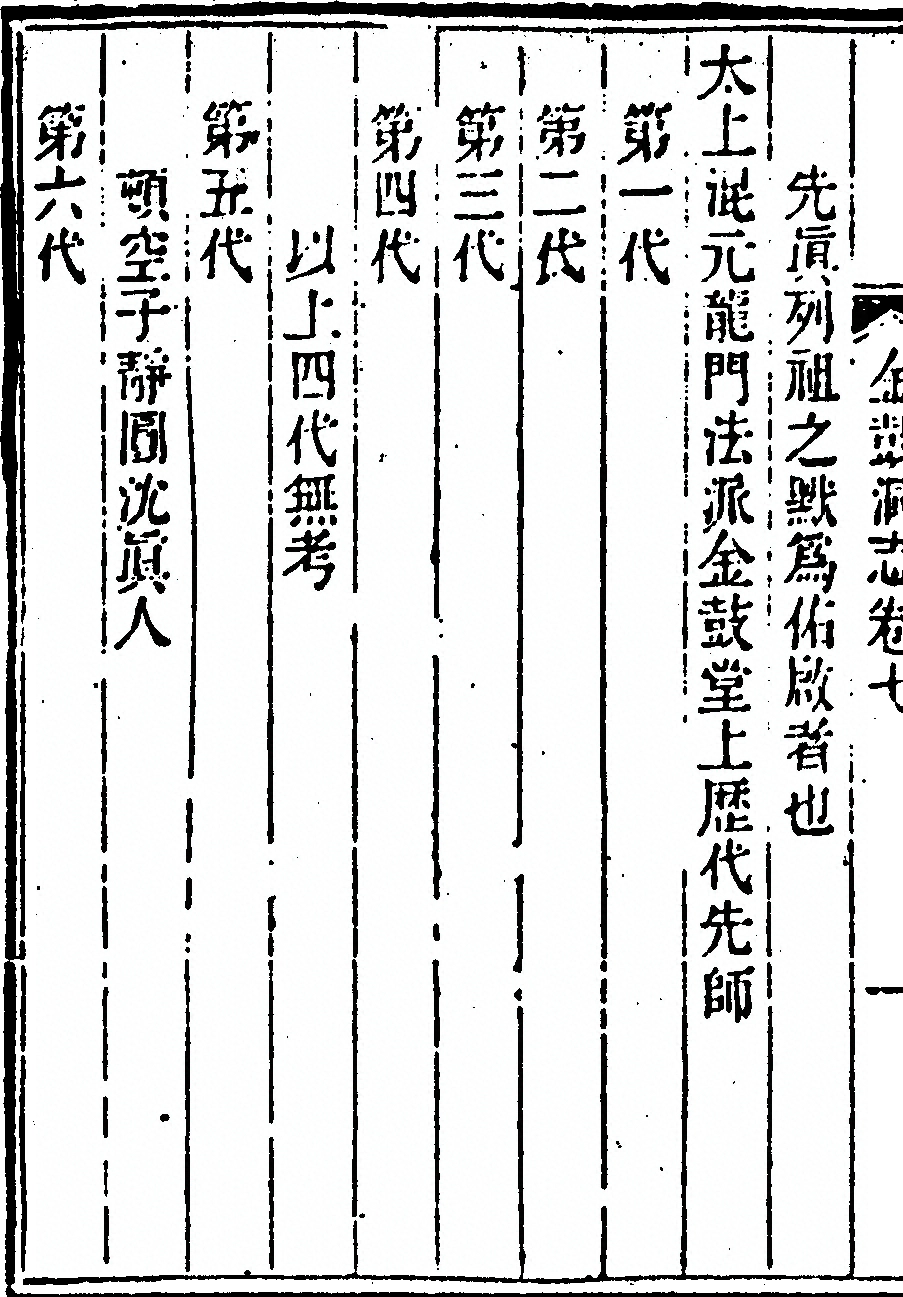 金鼓洞志卷七 一
先眞列祖之默爲佑啟者也
太上混元龍門法派金鼓堂上歷代先師
第一代
第二代
第三代
第四代
以上四代無考
第五代
頓空子靜圓沈眞人
第六代